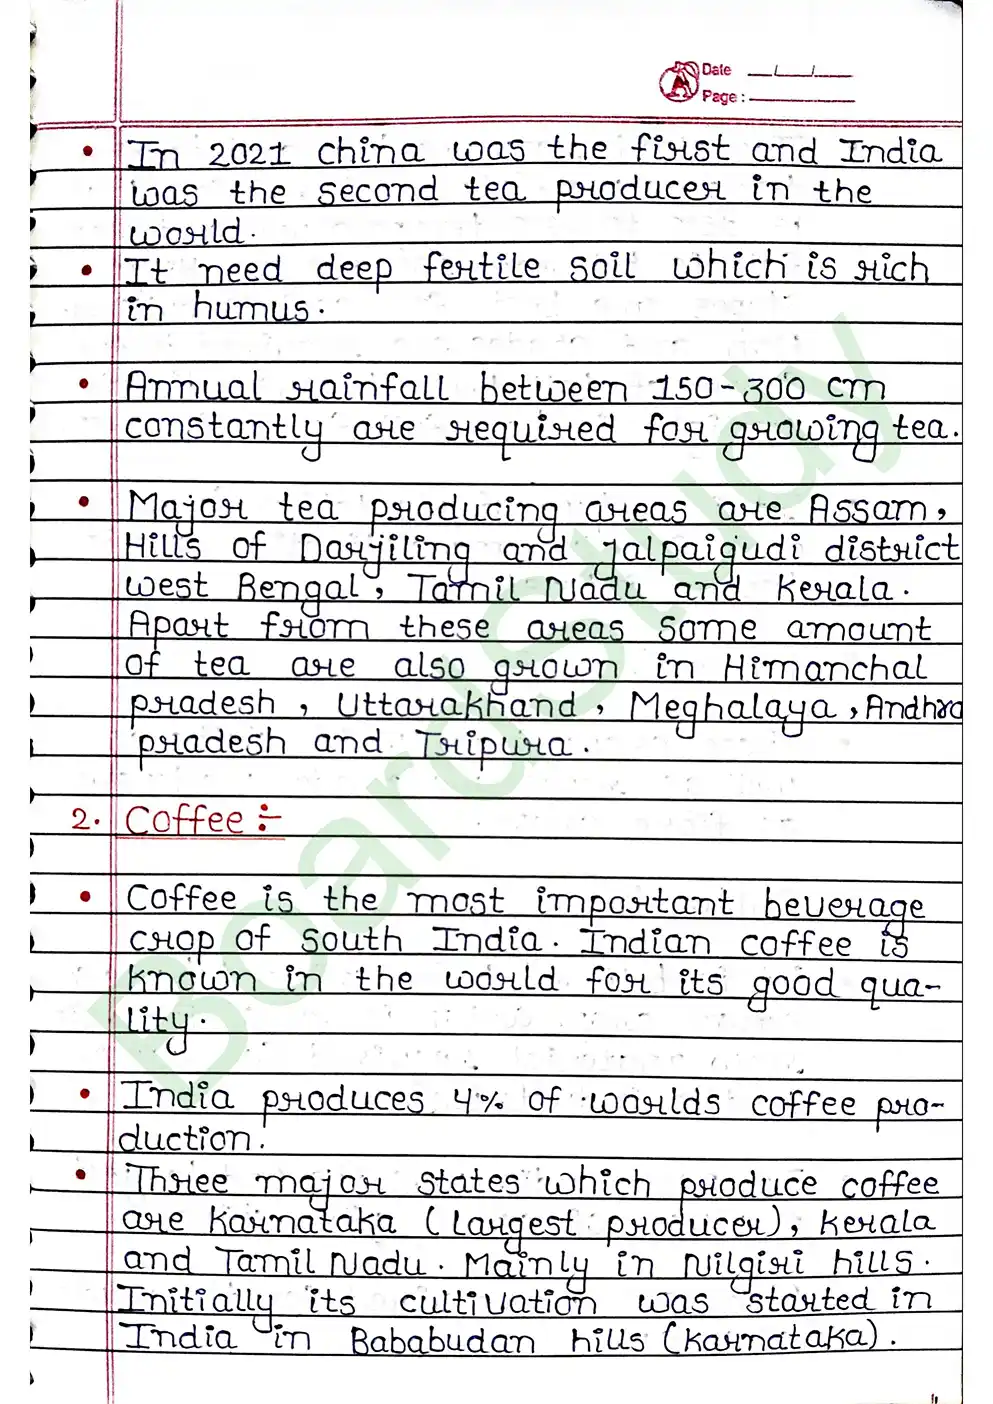 Date __/__/__
Page :
• In 2021 china was the first and India
was the second tea producer in the
world.
• It need deep fertile soil which is rich
in humus.
• Annual rainfall between 150-300 cm
constantly are required for growing tea.
• Major tea producing areas are Assam,
Hills of Darjiling and jalpaigudi district
west Bengal, Tamil Nadu and Kerala.
Apart from these areas some amount
of tea are also grown in Himanchal
pradesh, Uttarakhand, Meghalaya, Andhra
pradesh and Tripura.
2. Coffee :-
• Coffee is the most important beverage
crop of south India. Indian coffee is
known in the world for its good qua-
lity.
• India produces 4% of worlds coffee pro-
duction.
• Three major states which produce coffee
are Karnataka (largest producer), kerala
and Tamil Nadu. Mainly in Nilgiri hills.
Initially its cultivation was started in
India in Bababudan hills (Karnataka).
BoardStudy